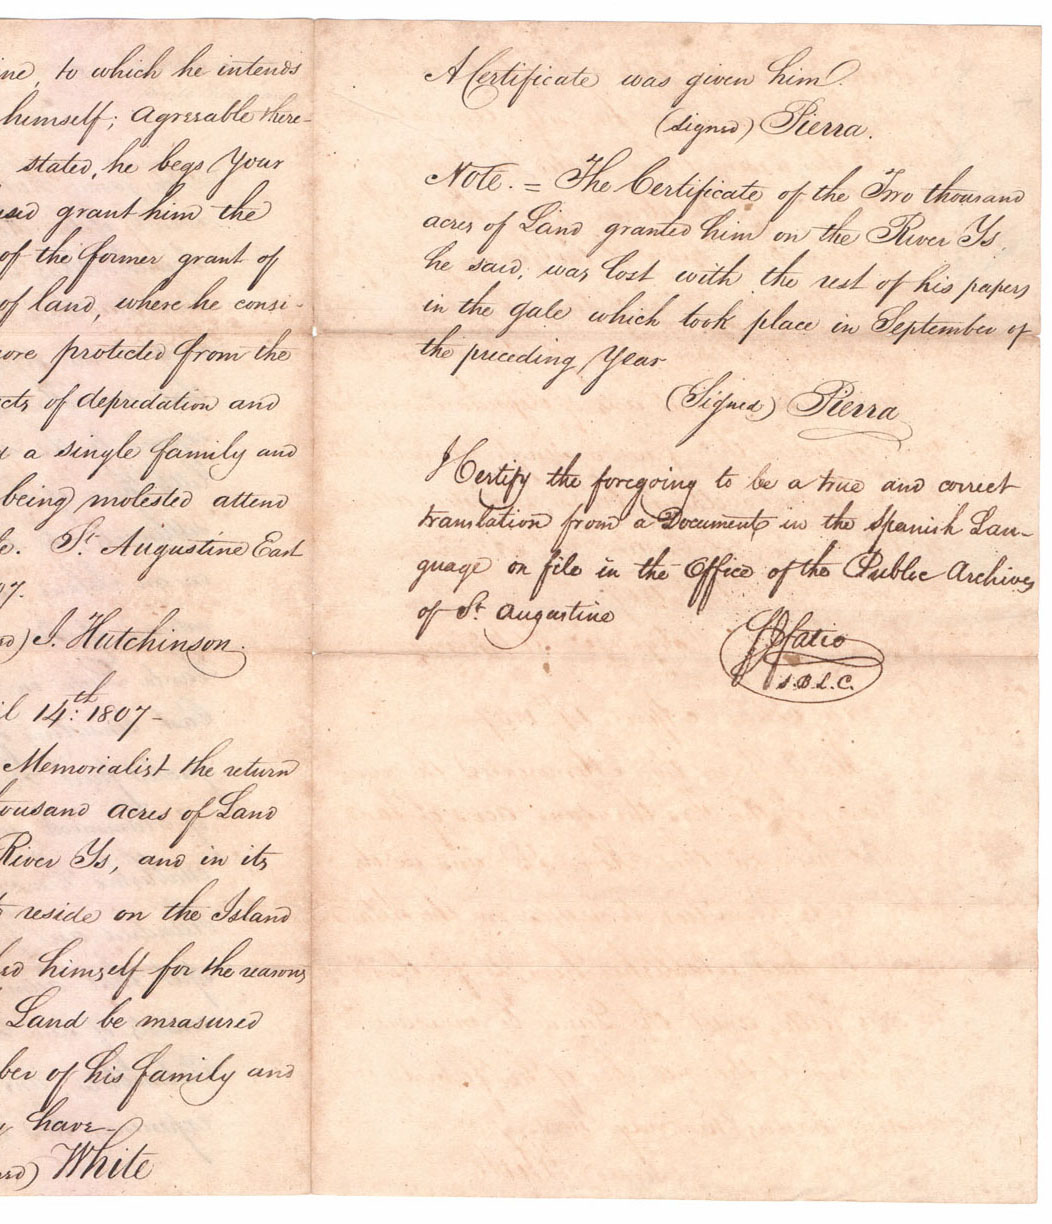 ine, to which he intends
himself; agreeable there-
stated, he begs Your
grant him the
of the former grant of
of land, where he consi-
ore protected from the
cts of depredation and
a single family and
being molested attend
le. St. Augustine East
07.
ed) J. Hutchinson.
il 14th: 1807-
Memorialist the return
ousand acres of Land
River Ys, and in its
reside on the Island
himself for the reasons
Land be measured
ber of his family and
have-
ed) White
A Certificate was given him.
(signed) Pierra.
Note. = The Certificate of the Two thousand
acres of Land granted him on the River Ys,
he said, was lost with the rest of his papers
in the gale which took place in September of
the preceding Year
(Signed) Pierra
I Certify the foregoing to be a true and correct
translation from a Document in the Spanish Lan-
guage on file in the Office of the Public Archives
of St. Augustine
Fatio
S.B.L.C.